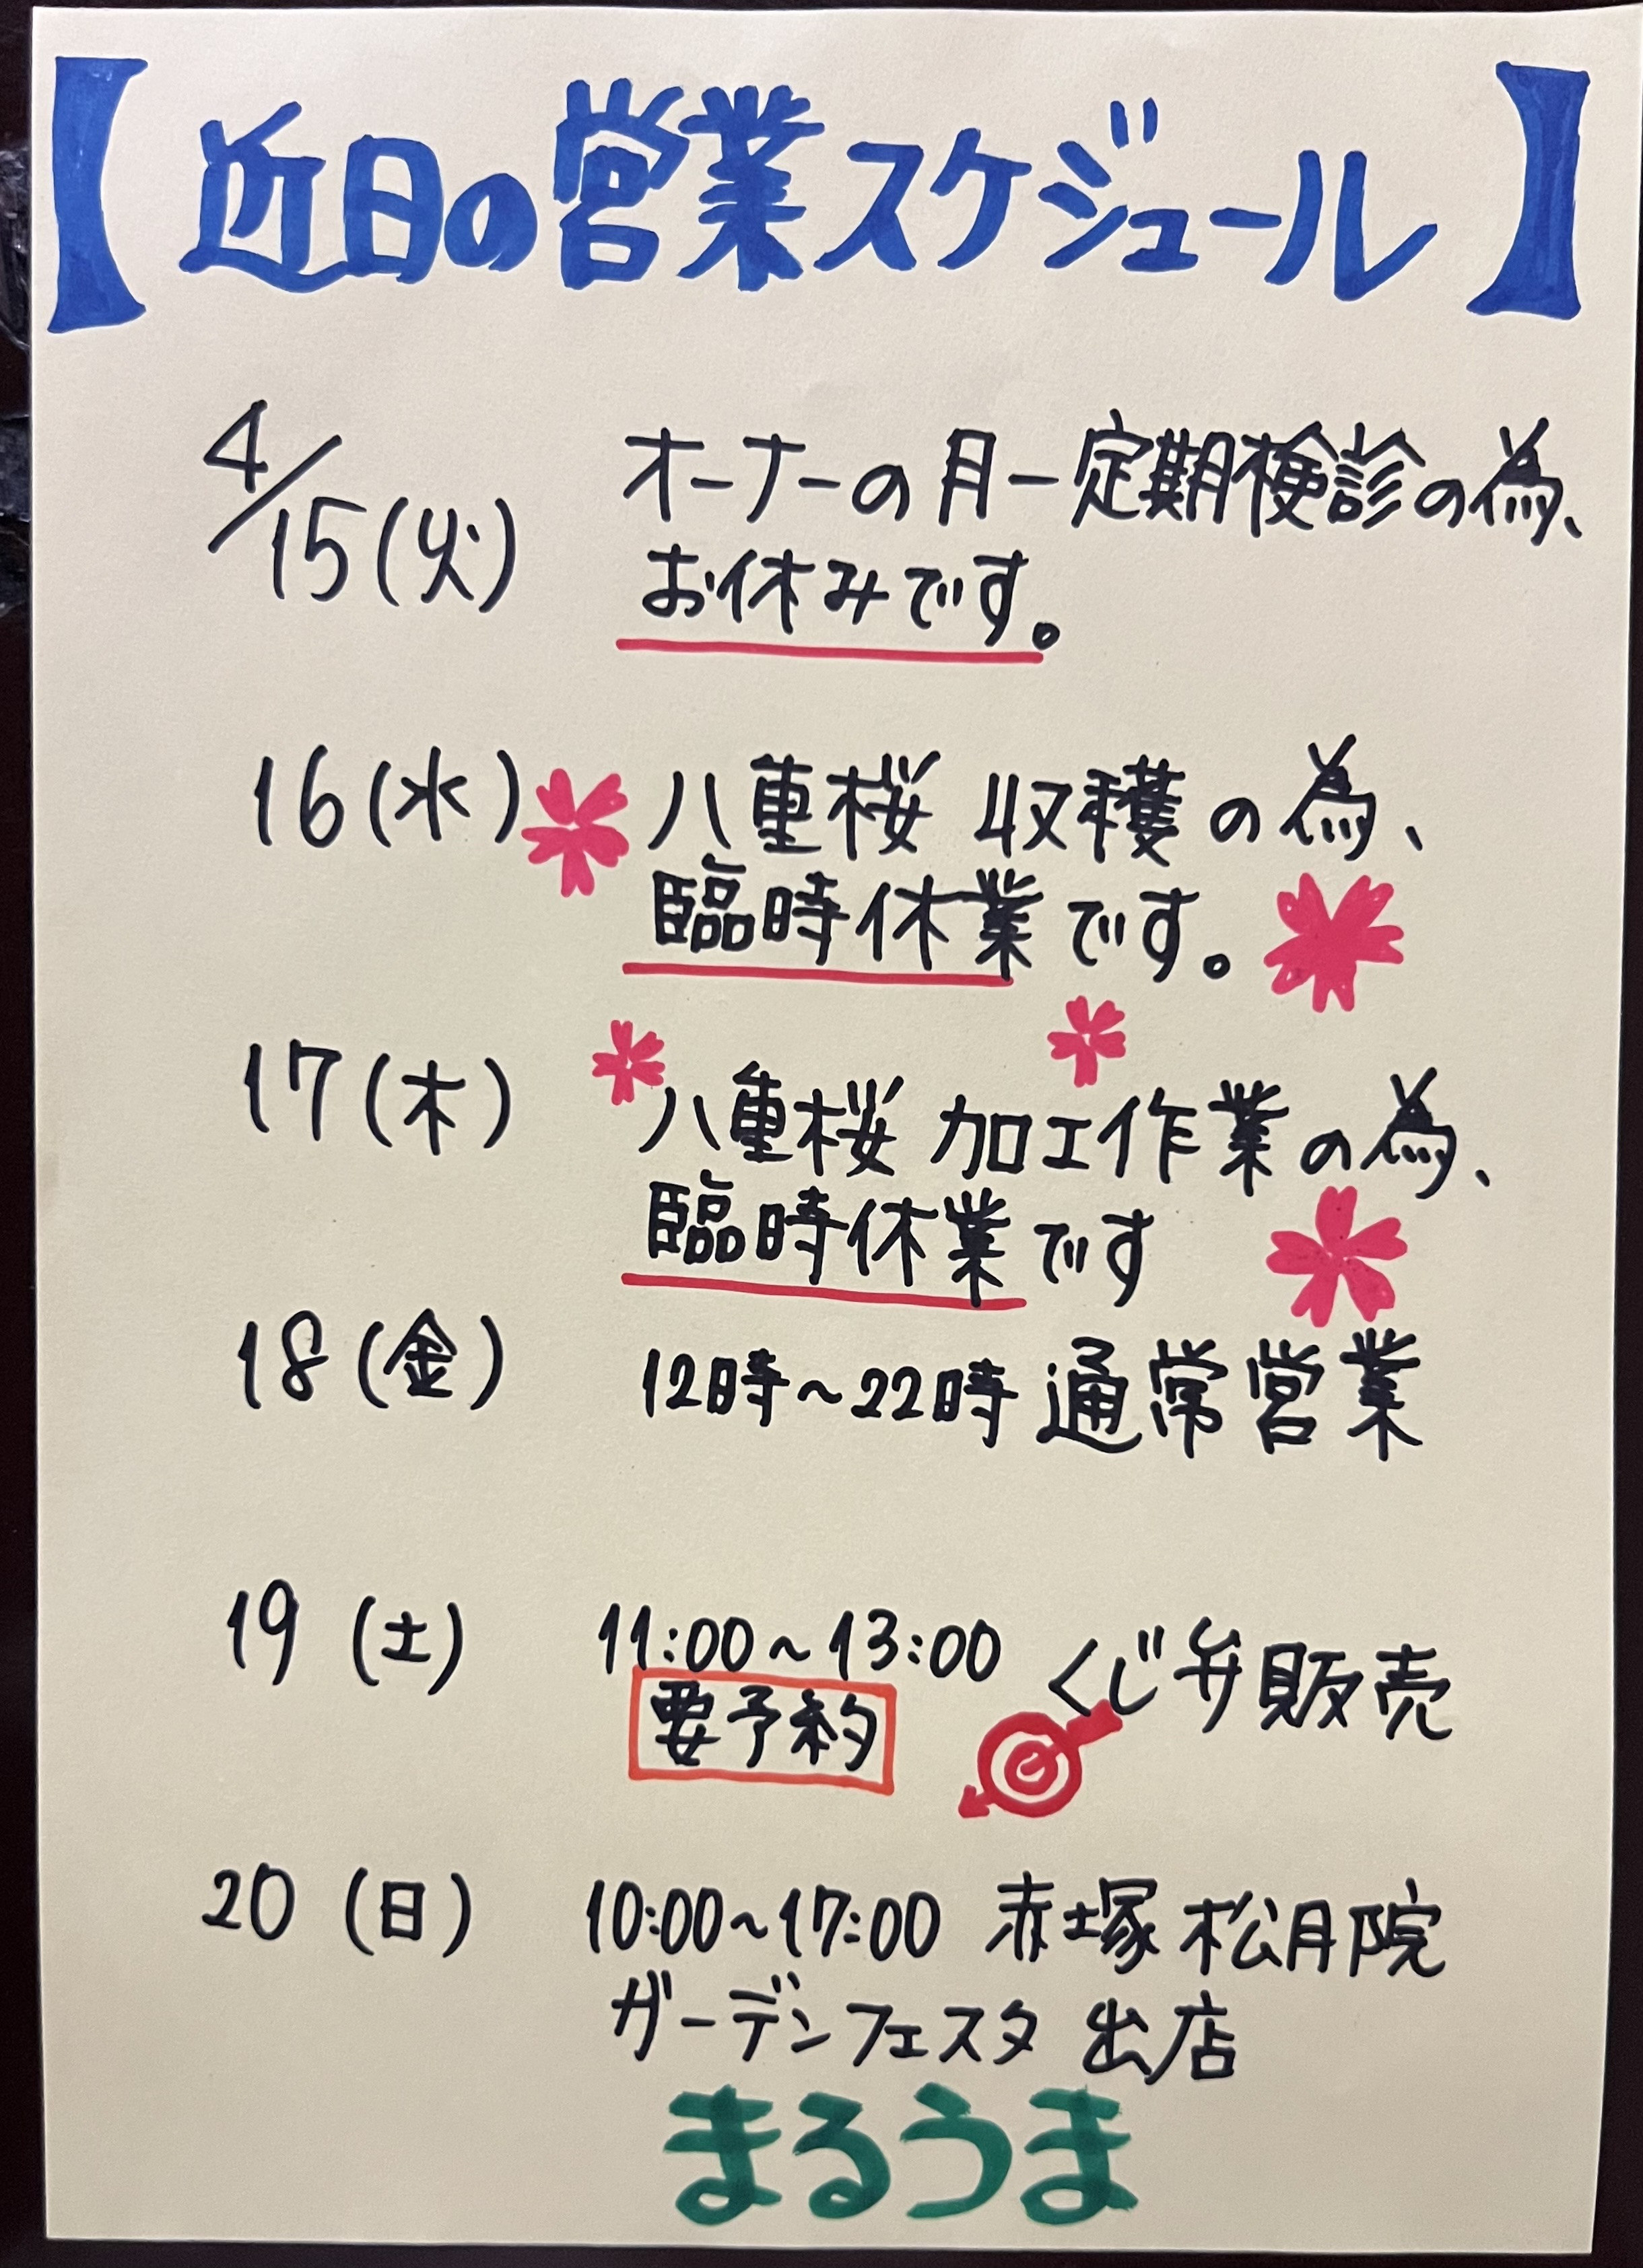 【近日の営業スケジュール】
4/15(火) オーナーの月一定期検診の為、
お休みです。
16(水) 八重桜 収穫の為、
臨時休業です。
17(木) 八重桜 加工作業の為、
臨時休業です
18(金) 12時～22時 通常営業
19(土) 11:00～13:00 くじ弁販売
要予約
20(日) 10:00～17:00 赤塚 松月院
ガーデンフェスタ 出店
まるうま